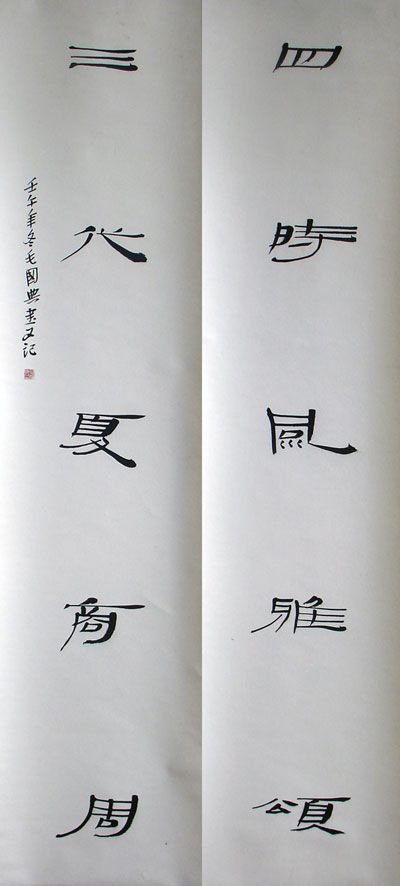 四時風雅頌
三代夏商周
壬午年冬毛國典書又記